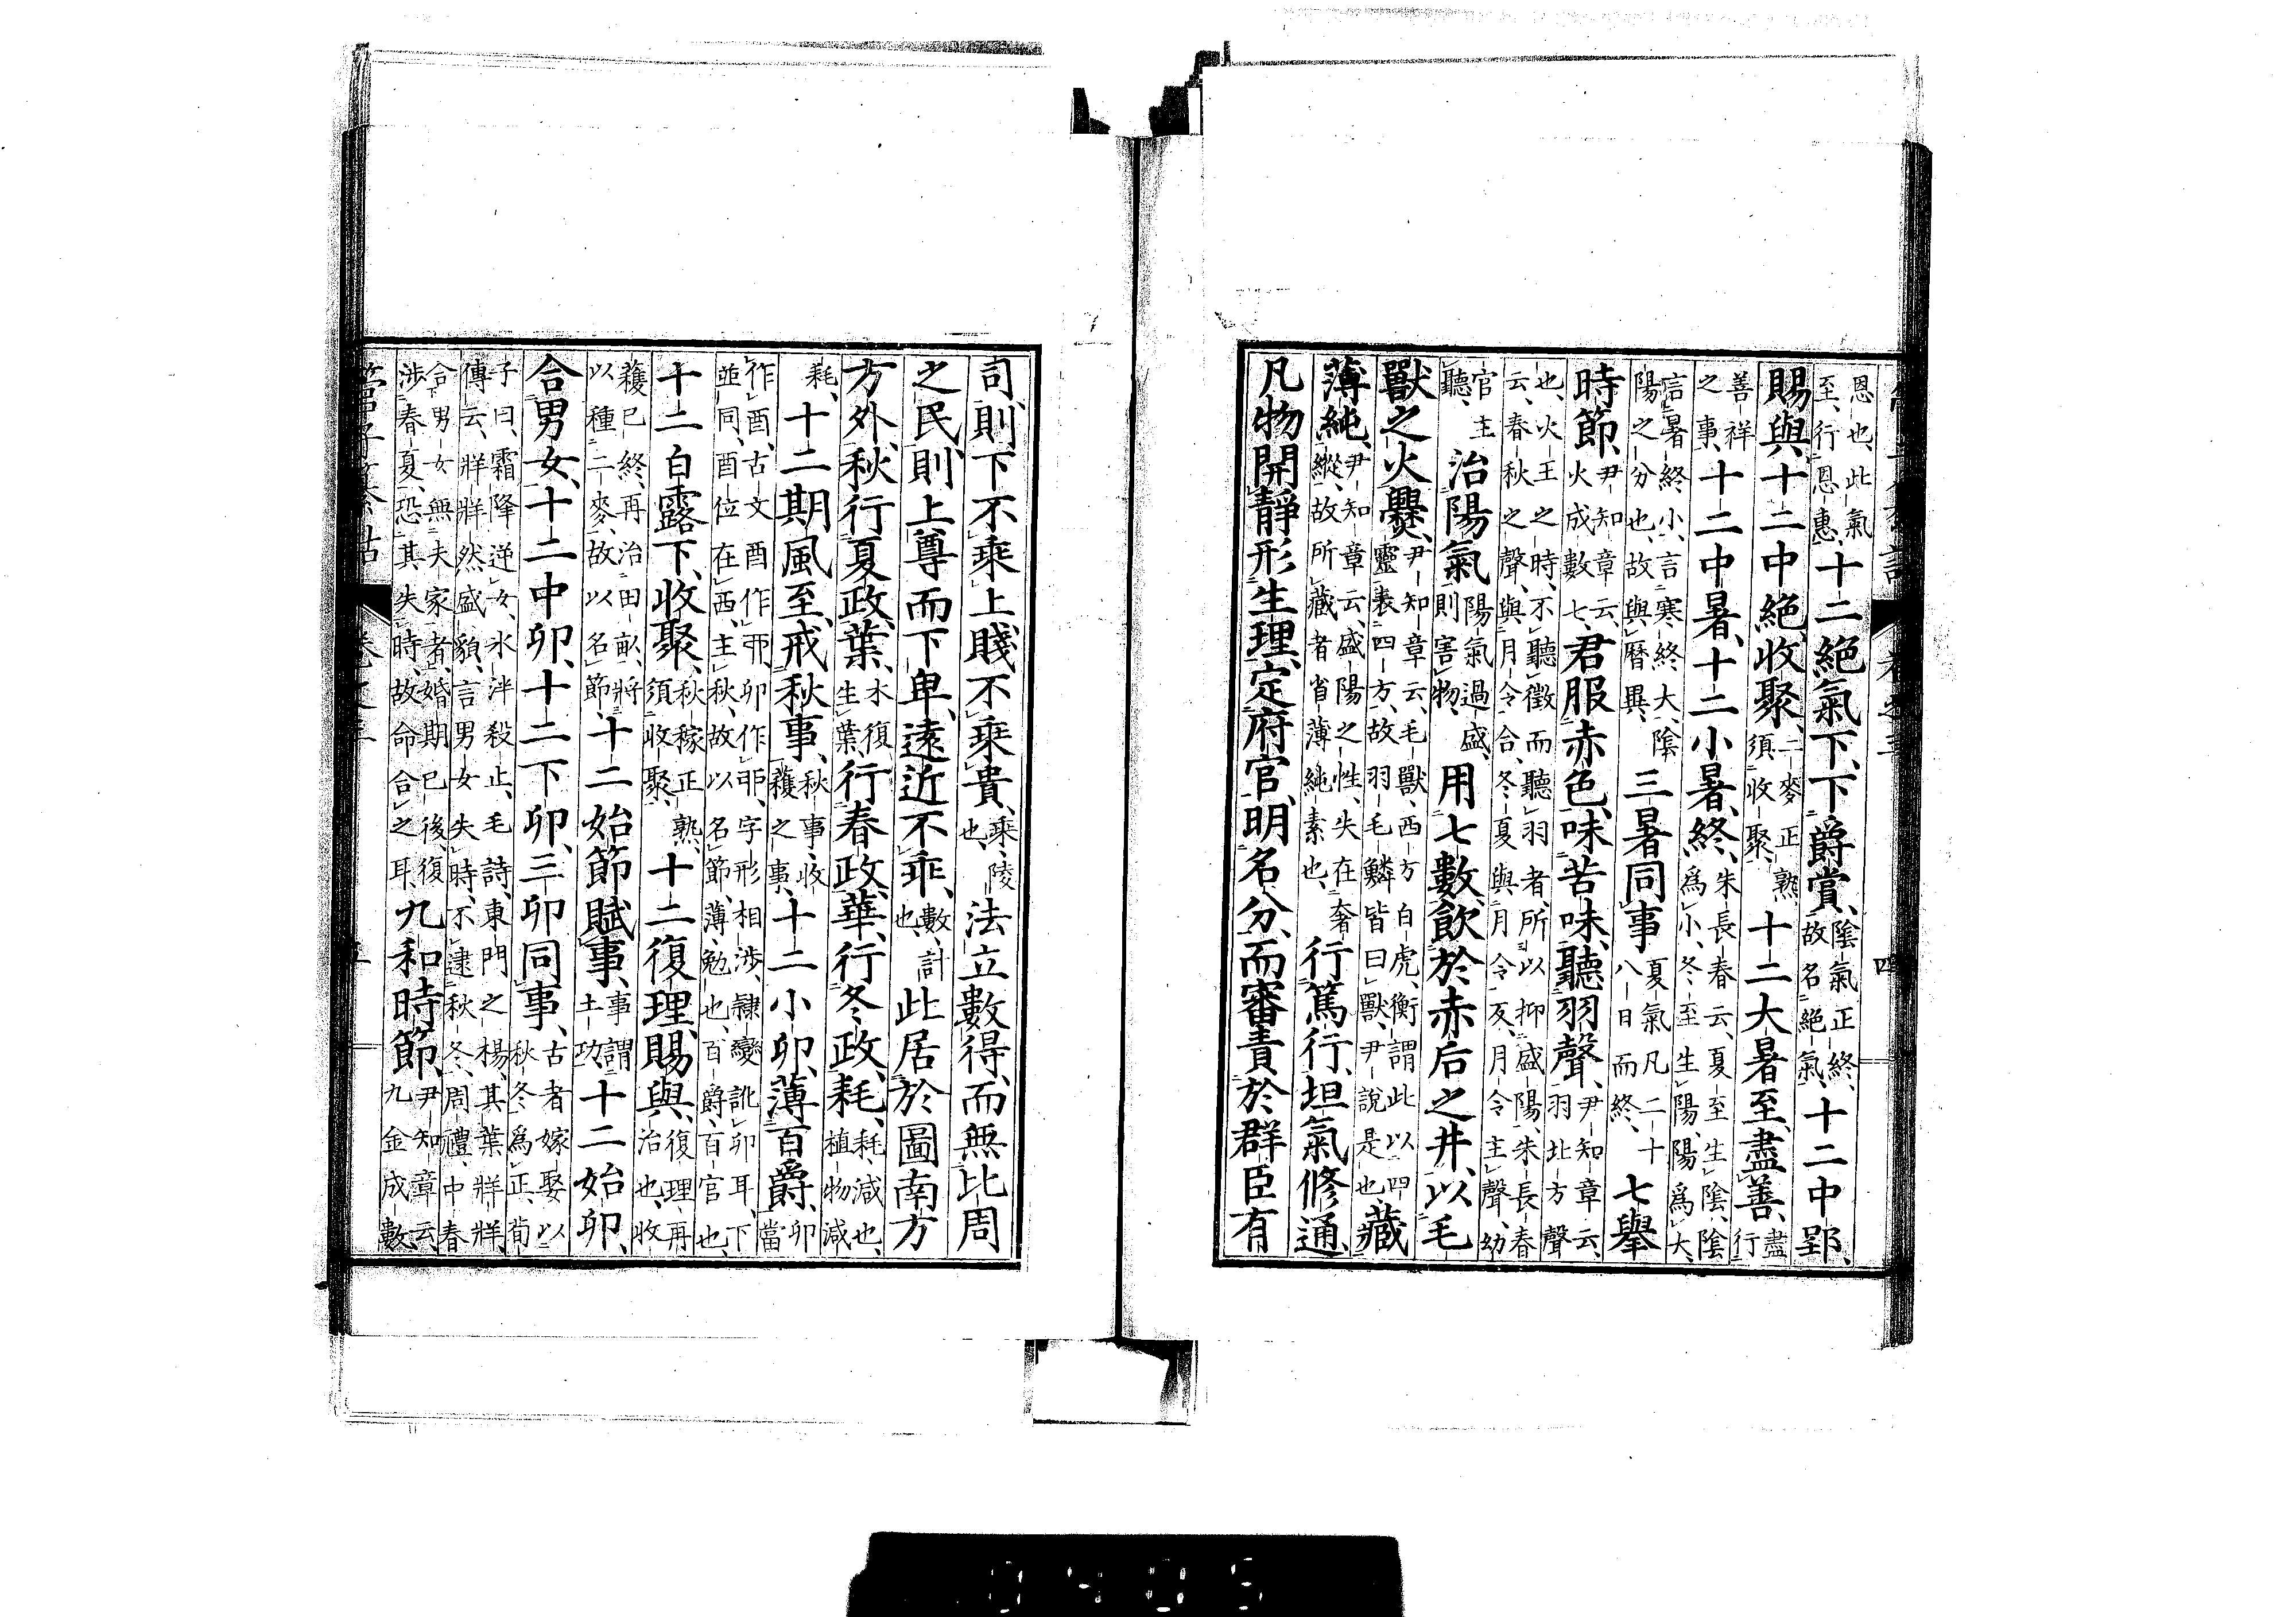 恩也、此氣至、行恩惠、十二絕氣下、下爵賞、陰氣正終、故名絕氣、十二中郢、
賜與、十二中絕、收聚、二麥正熟、須收聚、十二大暑至、盡善、盡行
善祥之事、十二中暑、十二小暑、終、朱長春云、夏至生陰、陰爲小、冬至生陽、陽爲大、
信暑終小、言寒終大、陰陽之分也、故與曆異、三暑同事、夏氣凡二十八日而終、七舉
時節、尹知章云、火成數七、君服赤色、味苦味、聽羽聲、尹知章云、羽北方聲
也、火王之時、不聽徵而聽羽者、所以抑盛陽、朱長春云、春秋之聲、與月令合、冬夏與月令反、月令主聲、幼
官主聽、治陽氣、陽氣過盛、則害物、用七數、飲於赤后之井、以毛
獸之火爨、尹知章云、毛獸、西方白虎、衡謂此以四靈表四方、故羽毛鱗皆曰獸、尹說是也、藏
薄純、尹知章云、盛陽之性、失在奢縱、故所藏者省薄純素也、行篤行、坦氣修通、
凡物開靜形生理、定府官、明名分、而審責於群臣有
司、則下不乘上、賤不乘貴、乘、陵也、法立數得、而無比周
之民、則上尊而下卑、遠近不乖、數、計也、此居於圖南方
方外、秋行夏政、葉、木復生葉、行春政、華、行冬政、耗、耗、減也、植物減
耗、十二期風至、戒秋事、秋事、收穫之事、十二小卯、薄百爵、卯當
作酉、古文酉作丣、卯作戼、字形相涉、隸變訛卯耳、下並同、酉位在西、主秋、故以名節、薄、勉也、百爵、百官也、
十二白露下、收聚、秋稼正熟、須收聚、十二復理、賜與、復理、再治也、收
穫已終、再治田畝、將以種二麥、故以名節、十二始節、賦事、事謂土功、十二始卯、
合男女、十二中卯、十二下卯、三卯同事、古者嫁娶以秋冬爲正、荀
子曰、霜降逆女、氷泮殺止、毛詩、東門之楊、其葉牂牂、傳云、牂牂然盛貌、言男女失時、不逮秋冬、周禮、中春
合男女無夫家者、婚期已後、復涉春夏、恐其失時、故命合之耳、九和時節、尹知章云、九金成數、